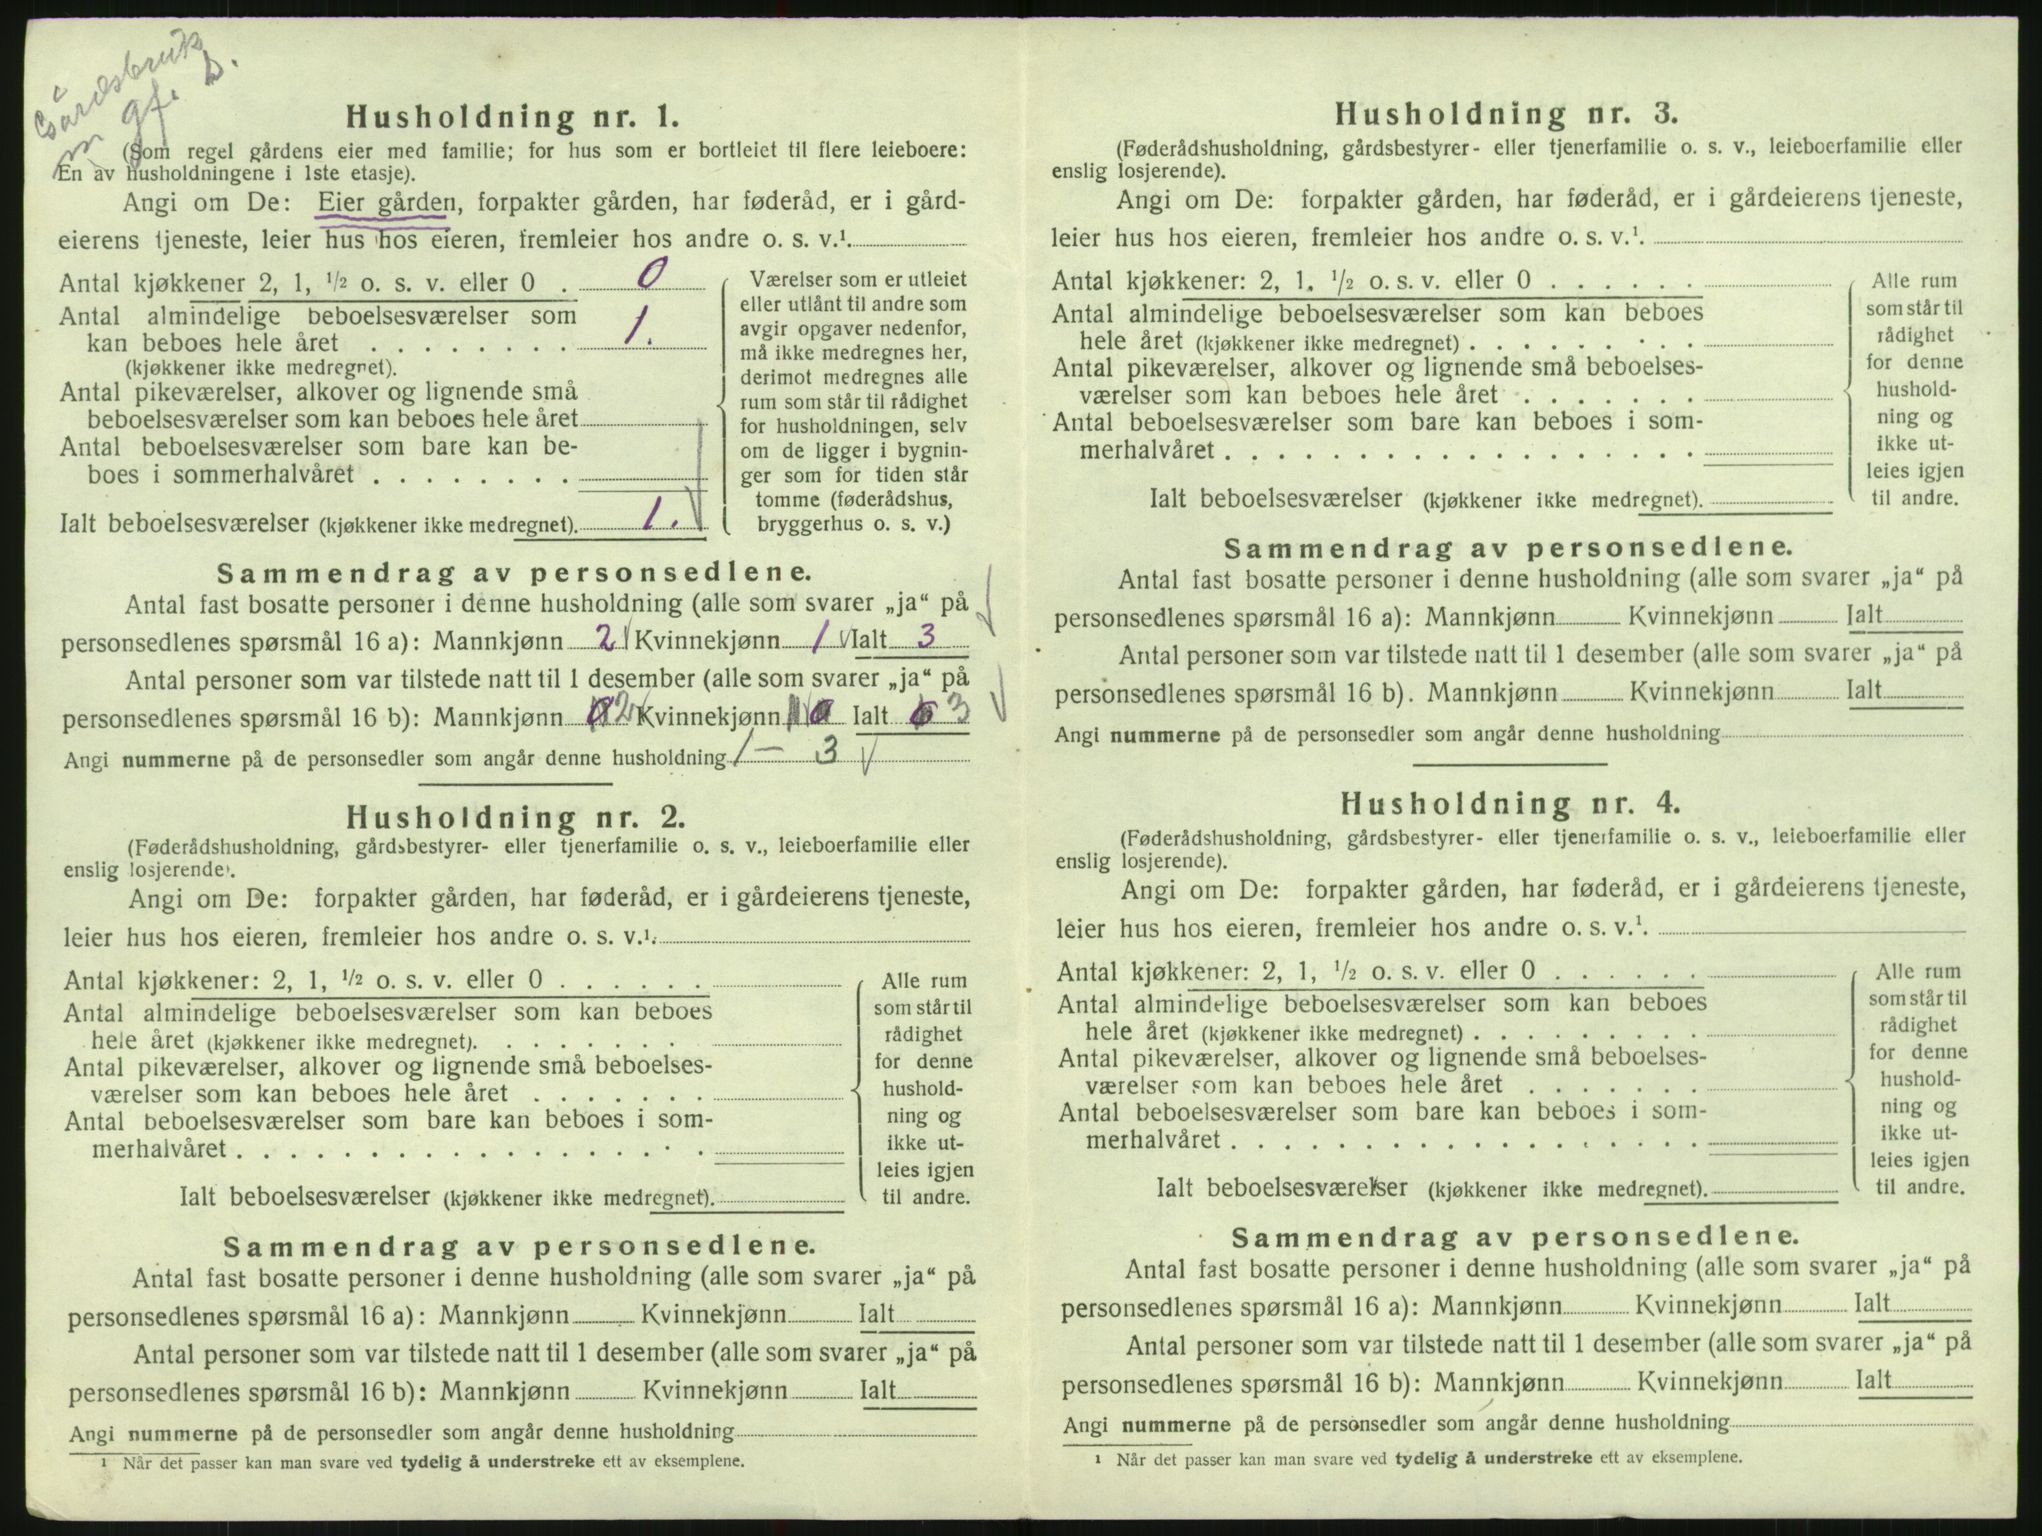 Gårdsbruk
m gf. b.
Husholdning nr. 1.
(Som regel gårdens eier med familie; for hus som er bortleiet til flere leieboere:
En av husholdningene i 1ste etasje).
Angi om De: Eier gården, forpakter gården, har føderåd, er i gård-
eierens tjeneste, leier hus hos eieren, fremleier hos andre o. s. v.¹.
Antal kjøkkener 2, 1, ½ o. s. v. eller 0 . 0
Antal almindelige beboelsesværelser som
kan beboes hele året . . . . . . . . 1.
(kjøkkener ikke medregnet).
Antal pikeværelser, alkover og lignende små
beboelsesværelser som kan beboes hele året
Antal beboelsesværelser som bare kan be-
boes i sommerhalvåret . . . . . . . .
Ialt beboelsesværelser (kjøkkener ikke medregnet). 1.
Værelser som er utleiet
eller utlånt til andre som
avgir opgaver nedenfor,
må ikke medregnes her,
derimot medregnes alle
rum som står til rådighet
for husholdningen, selv
om de ligger i bygnin-
ger som for tiden står
tomme (føderådshus,
bryggerhus o. s. v.)
Sammendrag av personsedlene.
Antal fast bosatte personer i denne husholdning (alle som svarer „ja“ på
personsedlenes spørsmål 16 a): Mannkjønn 2 Kvinnekjønn 1 Ialt 3
Antal personer som var tilstede natt til 1 desember (alle som svarer „ja“ på
personsedlenes spørsmål 16 b): Mannkjønn 0 2 Kvinnekjønn 1 0 Ialt 0 3
Angi nummerne på de personsedler som angår denne husholdning 1 — 3
Husholdning nr. 2.
(Føderådshusholdning, gårdsbestyrer- eller tjenerfamilie o. s. v., leieboerfamilie eller
enslig losjerende).
Angi om De: forpakter gården, har føderåd, er i gårdeierens tjeneste,
leier hus hos eieren, fremleier hos andre o. s. v.¹.
Antal kjøkkener: 2, 1, ½ o. s. v. eller 0 . . . . . .
Antal almindelige beboelsesværelser som kan beboes
hele året (kjøkkener ikke medregnet). . . . . . . .
Antal pikeværelser, alkover og lignende små beboelses-
værelser som kan beboes hele året . . . . . . .
Antal beboelsesværelser som bare kan beboes i som-
merhalvåret . . . . . . . . . . . . . . . . . .
Ialt beboelsesværelser (kjøkkener ikke medregnet).
Alle rum
som står til
rådighet
for denne
hushold-
ning og
ikke ut-
leies igjen
til andre.
Sammendrag av personsedlene.
Antal fast bosatte personer i denne husholdning (alle som svarer „ja“ på
personsedlenes spørsmål 16 a): Mannkjønn Kvinnekjønn Ialt
Antal personer som var tilstede natt til 1 desember (alle som svarer „ja“ på
personsedlenes spørsmål 16 b): Mannkjønn Kvinnekjønn Ialt
Angi nummerne på de personsedler som angår denne husholdning
¹ Når det passer kan man svare ved tydelig å understreke ett av eksemplene.
Husholdning nr. 3.
(Føderådshusholdning, gårdsbestyrer- eller tjenerfamilie o. s. v., leieboerfamilie eller
enslig losjerende).
Angi om De: forpakter gården, har føderåd, er i gårdeierens tjeneste,
leier hus hos eieren, fremleier hos andre o. s. v.¹.
Antal kjøkkener: 2, 1, ½ o. s. v. eller 0 . . . . . .
Antal almindelige beboelsesværelser som kan beboes
hele året (kjøkkener ikke medregnet) . . . . . . . . .
Antal pikeværelser, alkover og lignende små beboelses-
værelser som kan beboes hele året . . . . . . .
Antal beboelsesværelser som bare kan beboes i som-
merhalvåret . . . . . . . . . . . . . . . . . .
Ialt beboelsesværelser (kjøkkener ikke medregnet).
Alle rum
som står til
rådighet
for denne
hushold-
ning og
ikke ut-
leies igjen
til andre.
Sammendrag av personsedlene.
Antal fast bosatte personer i denne husholdning (alle som svarer „ja“ på
personsedlenes spørsmål 16 a): Mannkjønn Kvinnekjønn Ialt
Antal personer som var tilstede natt til 1 desember (alle som svarer „ja“ på
personsedlenes spørsmål 16 b). Mannkjønn Kvinnekjønn Ialt
Angi nummerne på de personsedler som angår denne husholdning
Husholdning nr. 4.
(Føderådshusholdning, gårdsbestyrer- eller tjenerfamilie o. s. v., leieboerfamilie eller
enslig losjerende).
Angi om De: forpakter gården, har føderåd, er i gårdeierens tjeneste,
leier hus hos eieren, fremleier hos andre o. s. v.¹.
Antal kjøkkener: 2, 1, ½ o. s. v. eller 0 . . . . . .
Antal almindelige beboelsesværelser som kan beboes
hele året (kjøkkener ikke medregnet) . . . . . . . . .
Antal pikeværelser, alkover og lignende små beboelses-
værelser som kan beboes hele året . . . . . . .
Antal beboelsesværelser som bare kan beboes i som-
merhalvåret . . . . . . . . . . . . . . . . . .
Ialt beboelsesværelser (kjøkkener ikke medregnet).
Alle rum
som står til
rådighet
for denne
hushold-
ning og
ikke ut-
leies igjen
til andre.
Sammendrag av personsedlene.
Antal fast bosatte personer i denne husholdning (alle som svarer „ja“ på
personsedlenes spørsmål 16 a): Mannkjønn Kvinnekjønn Ialt
Antal personer som var tilstede natt til 1 desember (alle som svarer „ja“ på
personsedlenes spørsmål 16 b): Mannkjønn Kvinnekjønn Ialt
Angi nummerne på de personsedler som angår denne husholdning
¹ Når det passer kan man svare ved tydelig å understreke ett av eksemplene.